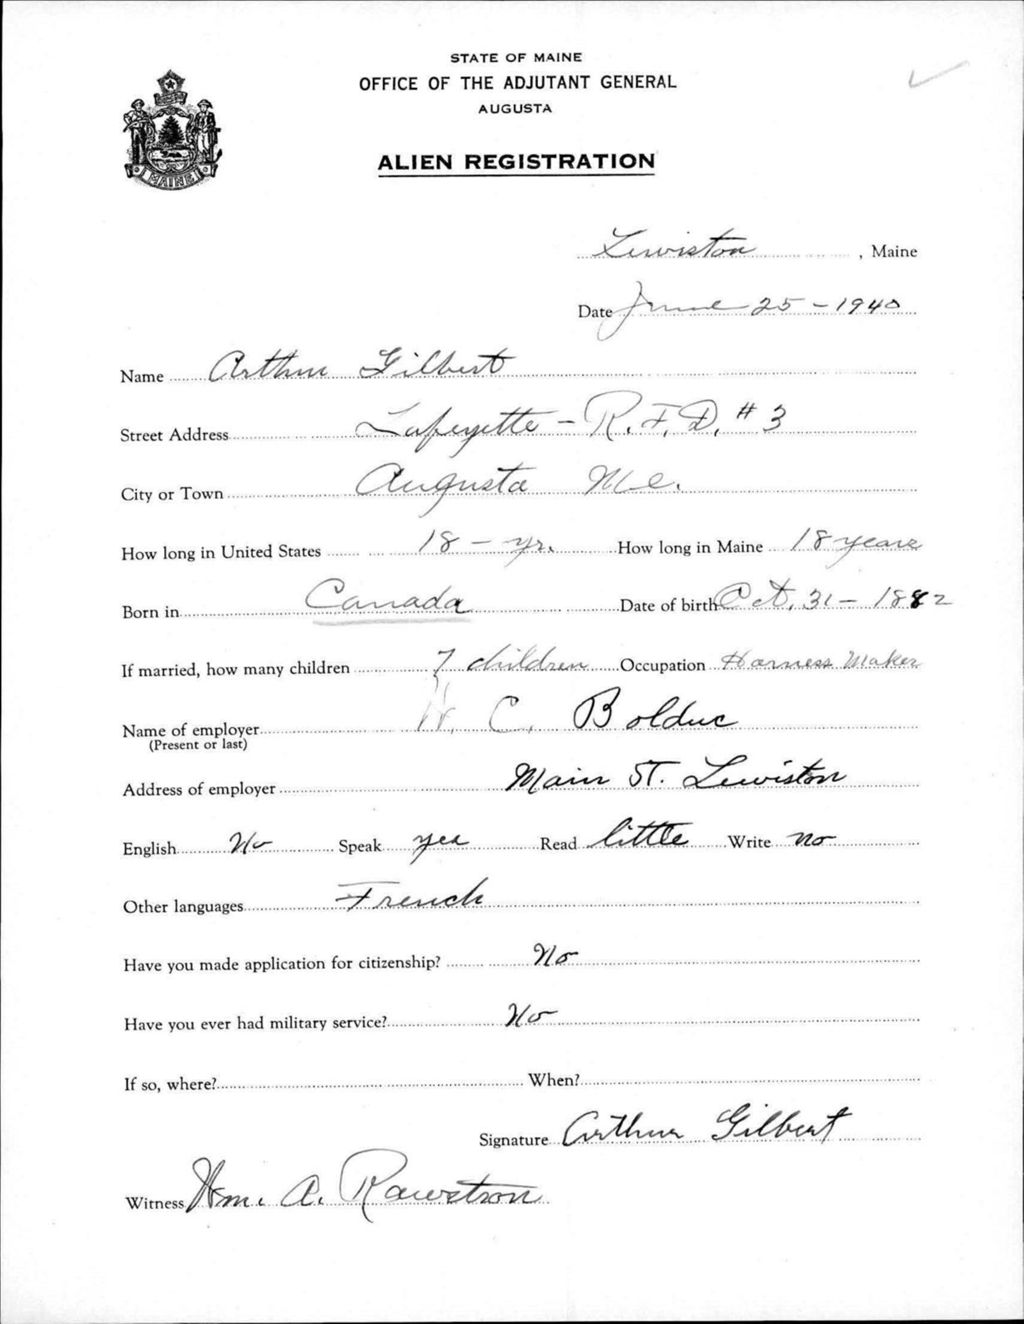 STATE OF MAINE
OFFICE OF THE ADJUTANT GENERAL
AUGUSTA
ALIEN REGISTRATION
MAINE
Lewiston, Maine
Date June 25-1940
Name Arthur Gilbert
Street Address Lafeyette - R.F.D. #3
City or Town Augusta Me.
How long in United States 18 - yr. How long in Maine 18 years
Born in Canada Date of birth Oct. 31 - 1882
If married, how many children 7 children Occupation Harness Maker
Name of employer C. Bolduc
(Present or last)
Address of employer Main St. Lewiston
English No Speak yes Read little Write no
Other languages French
Have you made application for citizenship? No
Have you ever had military service? No
If so, where? When?
Signature Arthur Gilbert
Witness Wm. A. Rawstron